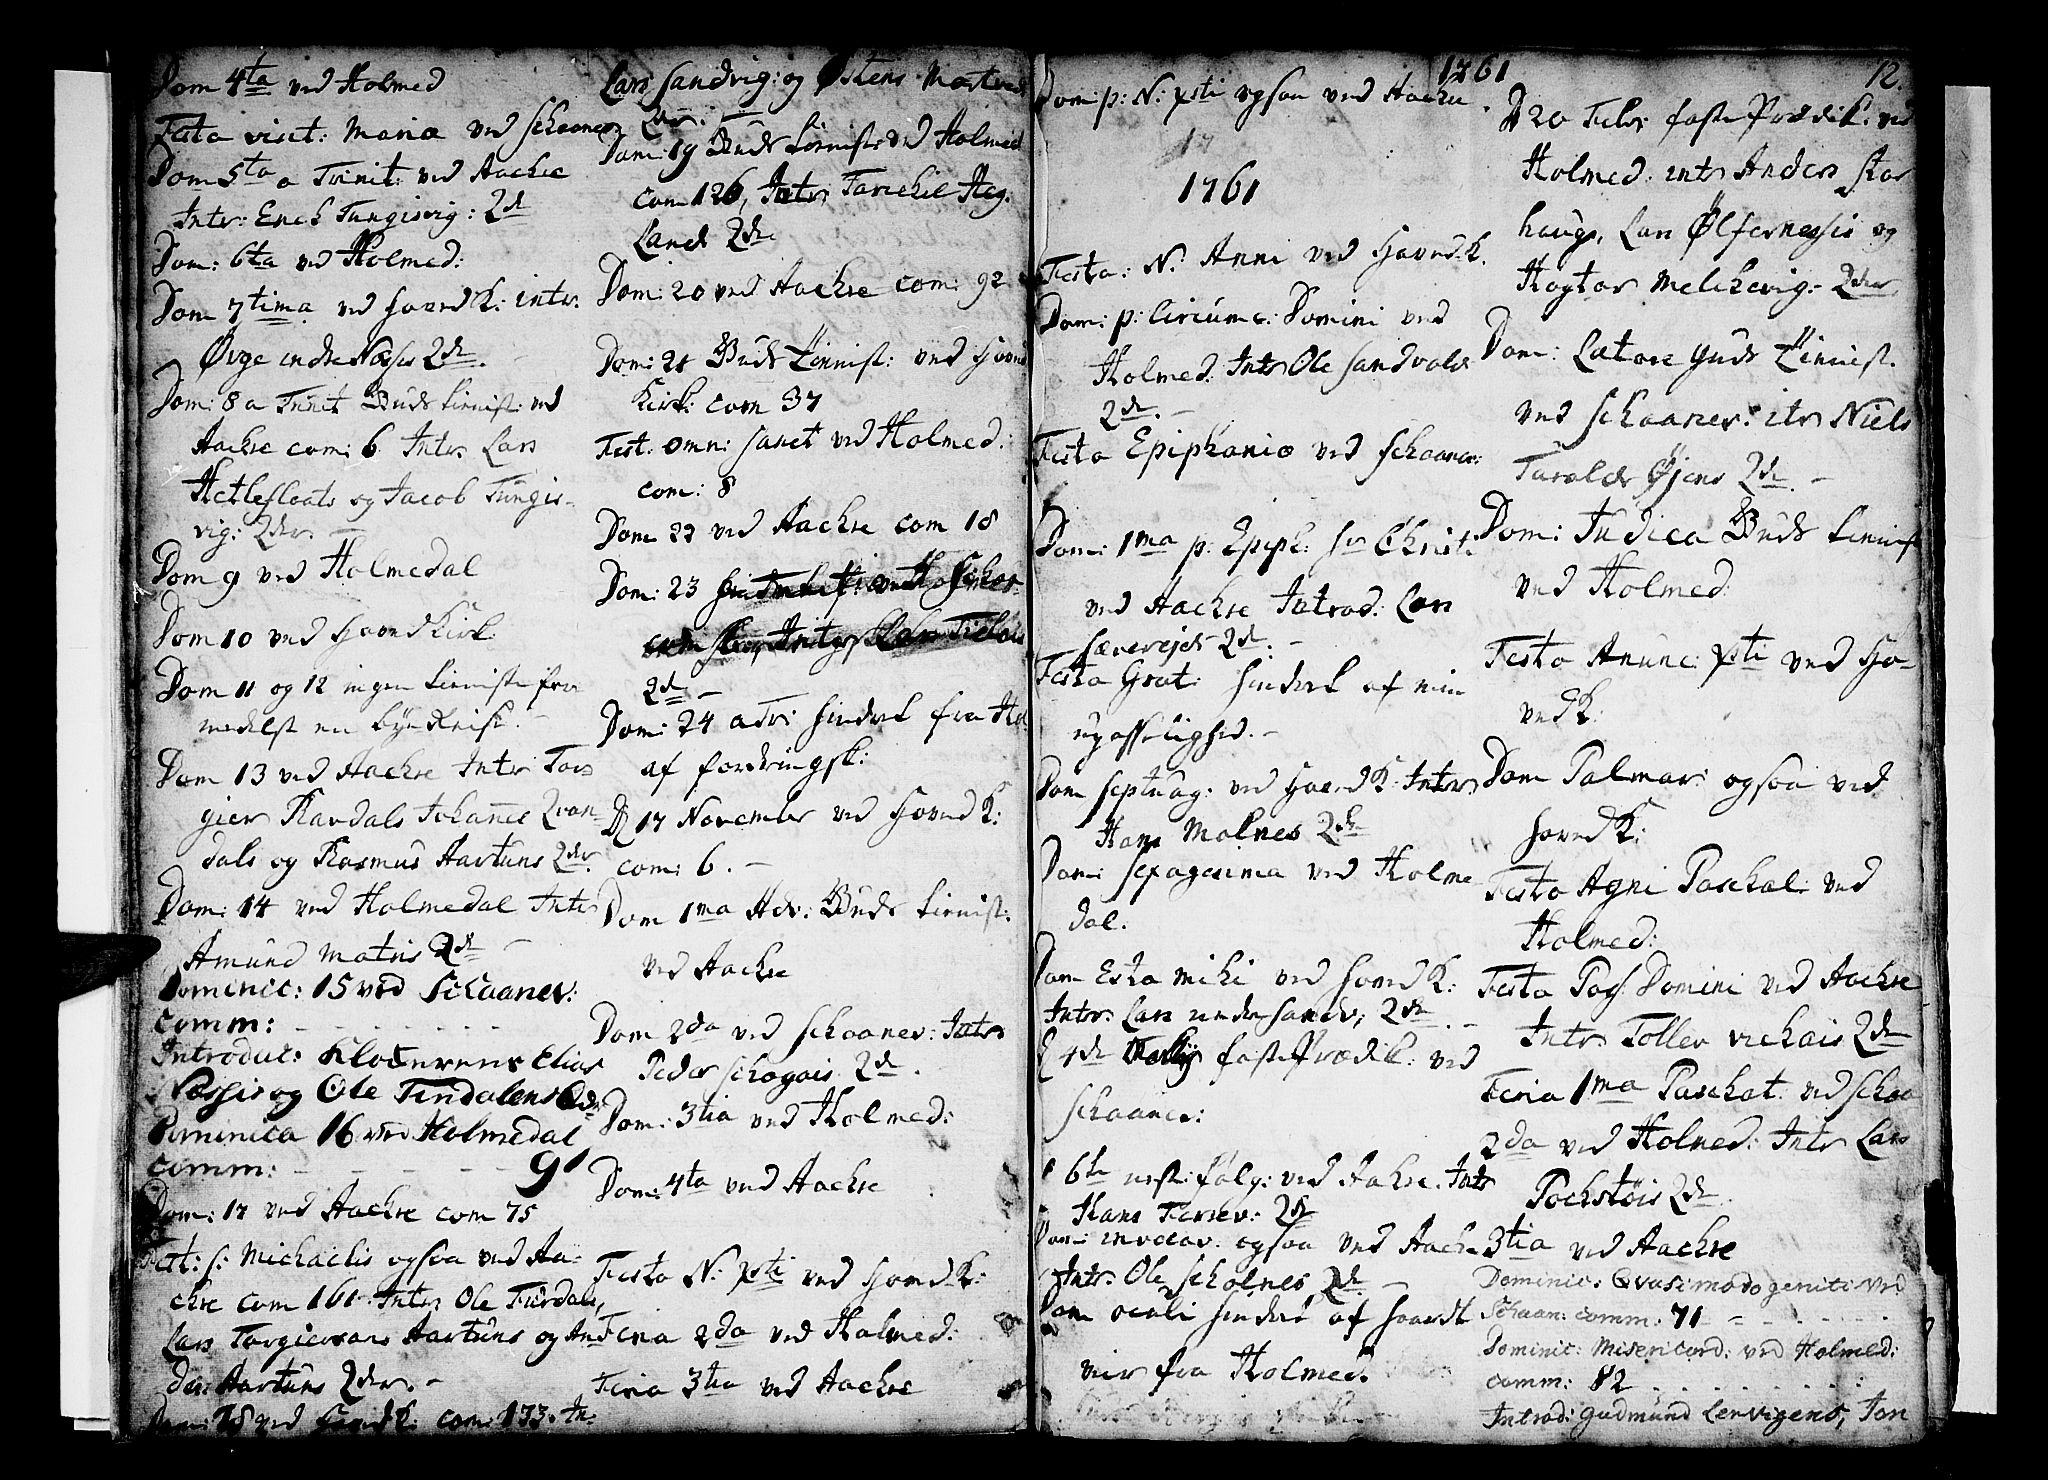 Dom 4ta ved Holmed
Festa visit: Mariæ ved Schaanev:
Dom 5ta a Trinit: ved Aachre
Intr: Erich Tungisvig: 2de
Dom: 6ta ved Holmed:
Dom 7tima ved HovedK: intr.
Øvge indre Næsses 2de.
Dom: 8 a Trinit Guds tienist: ved
Aachre com: 6. Intr. Lars
Hetlefloats og Jacob Tungis-
vig: 2der.
Dom 9 ved Holmedal
Dom 10 ved Hovedkirk:
Dom 11 og 12 ingen tieniste for
medelst en
Dom 13 ved Aachre Intr. Tor
gier Kavdals Johannes Qvan
dals og Rasmus Aartuns 2der
Dom: 14 ved Holmedal Intr
Amund Matris 2de
Dominic: 15 ved Schaanev:
comm: - - - - - -
Introduc: Elias
Næssis og Ole Tindalens 2de
Dominica 16 ved Holmedal
comm: - - - - - 91
Dom: 17 ved Aachre com 75
Fest: S: Michaelis ogsaa ved Aa-
chre com 161. Intr. Ole Furdals,
Lars Torgiersons Aartuns og An
ders Aartuns 2der. -
Dom: 18 ved HovedK. com: 173. In-
Lars Sandvig: og Østens
Dom: 19 Guds tieniste ved Holmed
com 126, Intr. Tarchie Heg.
Land 2de
Dom: 20 ved Aachre com: 92
Dom: 21 Guds tienist: ved Hoved
Kirk: com 37
Fest. omn: Sanct ved Holmed.
com: 8
Dom 22 ved Aachre com 18
Dom: 23
Intr. Lars
2de -
Dom: 24 a Tr: hindret fra Hol.
af fordringsk:
D 17 November ved HovedK:
com: 6. -
Dom 1ma Adv: Guds tienist:
ved Aachre
Dom 2da ved Schaanev: Intr.
Peder Schogais 2de.
Dom: 3tia ved Holmed:
Dom: 4ta ved Aachre
Festo N: Xsti ved HovedK:
Feria 2da ved Holmed:
Feria 3tia ved Aachre
1761
Dom: p: N: Xsti ogsaa ved Aachre.
17
1761
Festo: N. Anni ved HovedK.
Dom: p: Circumc: Domini ved
Holmed. Intr. Ole Sandvols
2de. -
Festo Epiphaniæ ved Schaanev:
Dom: 1ma p: Epiph: Christ:
ved Aachre Introd: Lars
Sæverejds 2de. -
Festa Grat: hindret af min
upasselighed. -
Dom Septuag: ved HovedK. Intr.
Hans Malnes 2de
Dom: Sexagesima ved Holme
dal.
Dom Esto mihi ved HovedK:
Intr. Lars nedre Sandv; 2de
D 4de faste Prædik. ved
Schaanev:
D 6te nest: følg: ved Aachre. Intr
Hans Tersev: 2de
Dom: invocav. ogsaa ved Aachre
Intr. Ole Scholnes 2de -
Dom oculi hindret af haardt
veir fra Holmed.
12.
D 20 Febr: faste Prædik. ved
Holmed. intr Anders Skor
haugs, Lars Ølfernessis og
Hogtor Melchevig: 2der
Dom: Lætare Guds tienist.
ved Schaanev. itr. Niels
Taralds Øjens 2de. -
Dom: Judica Guds tienist
ved Holmed:
Festo Anunc: Xsti ved Ho-
vedK:
Dom Palmar: ogsaa ved
HovedK:
Festo Agni Paschal: ved
Holmed:
Festo Pass: Domini ved Aachre
Intr. Tollev vichais 2de
Feria 1ma Paschat. ved Schoa
2da ved Holmed: Intr. Lars
Pochstøis 2de.
3tia ved Aachre
Dominic: Qvasimodogeniti ved
Schaan: comm: 71 - - - -
Dominic: Misericord: ved Holmed:
comm: 82 - - - - -
Introd: Gudmund Lervigens, Jon